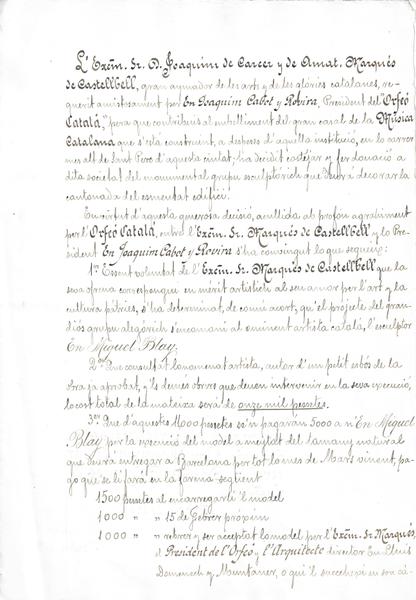 L'Excm. Sr. D. Joaquim de Carcer y de Amat. Marqués
de Castellbell, gran aymador de les arts y de les glories catalanes, re-
querit amistosament per En Joaquim Cabot y Rovira, President del "Orfeó
Català," pera que contribuís al embelliment del gran casal de la Música
Catalana que s'está construint, a despeses d'aquella institució, en lo carrer
mes alt de Sant Pere d'aquesta ciutat; ha decidit costejar y fer donació a
dita societat del monumental grupu escultòrich que deurá decorar la
cantonada del esmentat edifici.
En virtut d'aquesta generosa decisió, acullida ab profon agrahiment
per l'Orfeó Català, entre l'Excm. Sr. Marqués de Castellbell y lo Pre-
sident En Joaquim Cabot y Rovira s'ha convingut lo que segueix:
1er Essent voluntat de l'Excm. Sr. Marqués de Castellbell que la
seva ofrena correspongui en mérit artístich al seu amor per l'art y la
cultura patries, s'ha determinat, de comú acort, qu'el projecte del gran-
diós grupu alegórich s'encomani al eminent artista catalá, l'esculptor
En Miquel Blay.
2on Que consultat lo nomenat artista, autor d'un petit esbós de la
obra ja aprobat, y 'ls demés obrers que deuen intervenir en la seva execució,
lo cost total de la mateixa será de onze mil pessetes.
3er Que d'aquestes 11000 pessetes se'n pagarán 5000 a n'En Miquel
Blay per la execució del model a meytat del tamany natural
que deurá entregar a Barcelona per tot lo mes de Mars vinent, pa-
go que se li fará en la forma següent
1500 pessetes al encarregarli 'l model
1000 " " 15 de Febrer próxim
1000 " " rebrer y ser acceptat lo model per l'Excm. Sr. Marqués,
el President de l'Orfeó y l'Arquitecte director En Lluis
Domenech y Muntaner, o qui 'l succehexi en son cá-